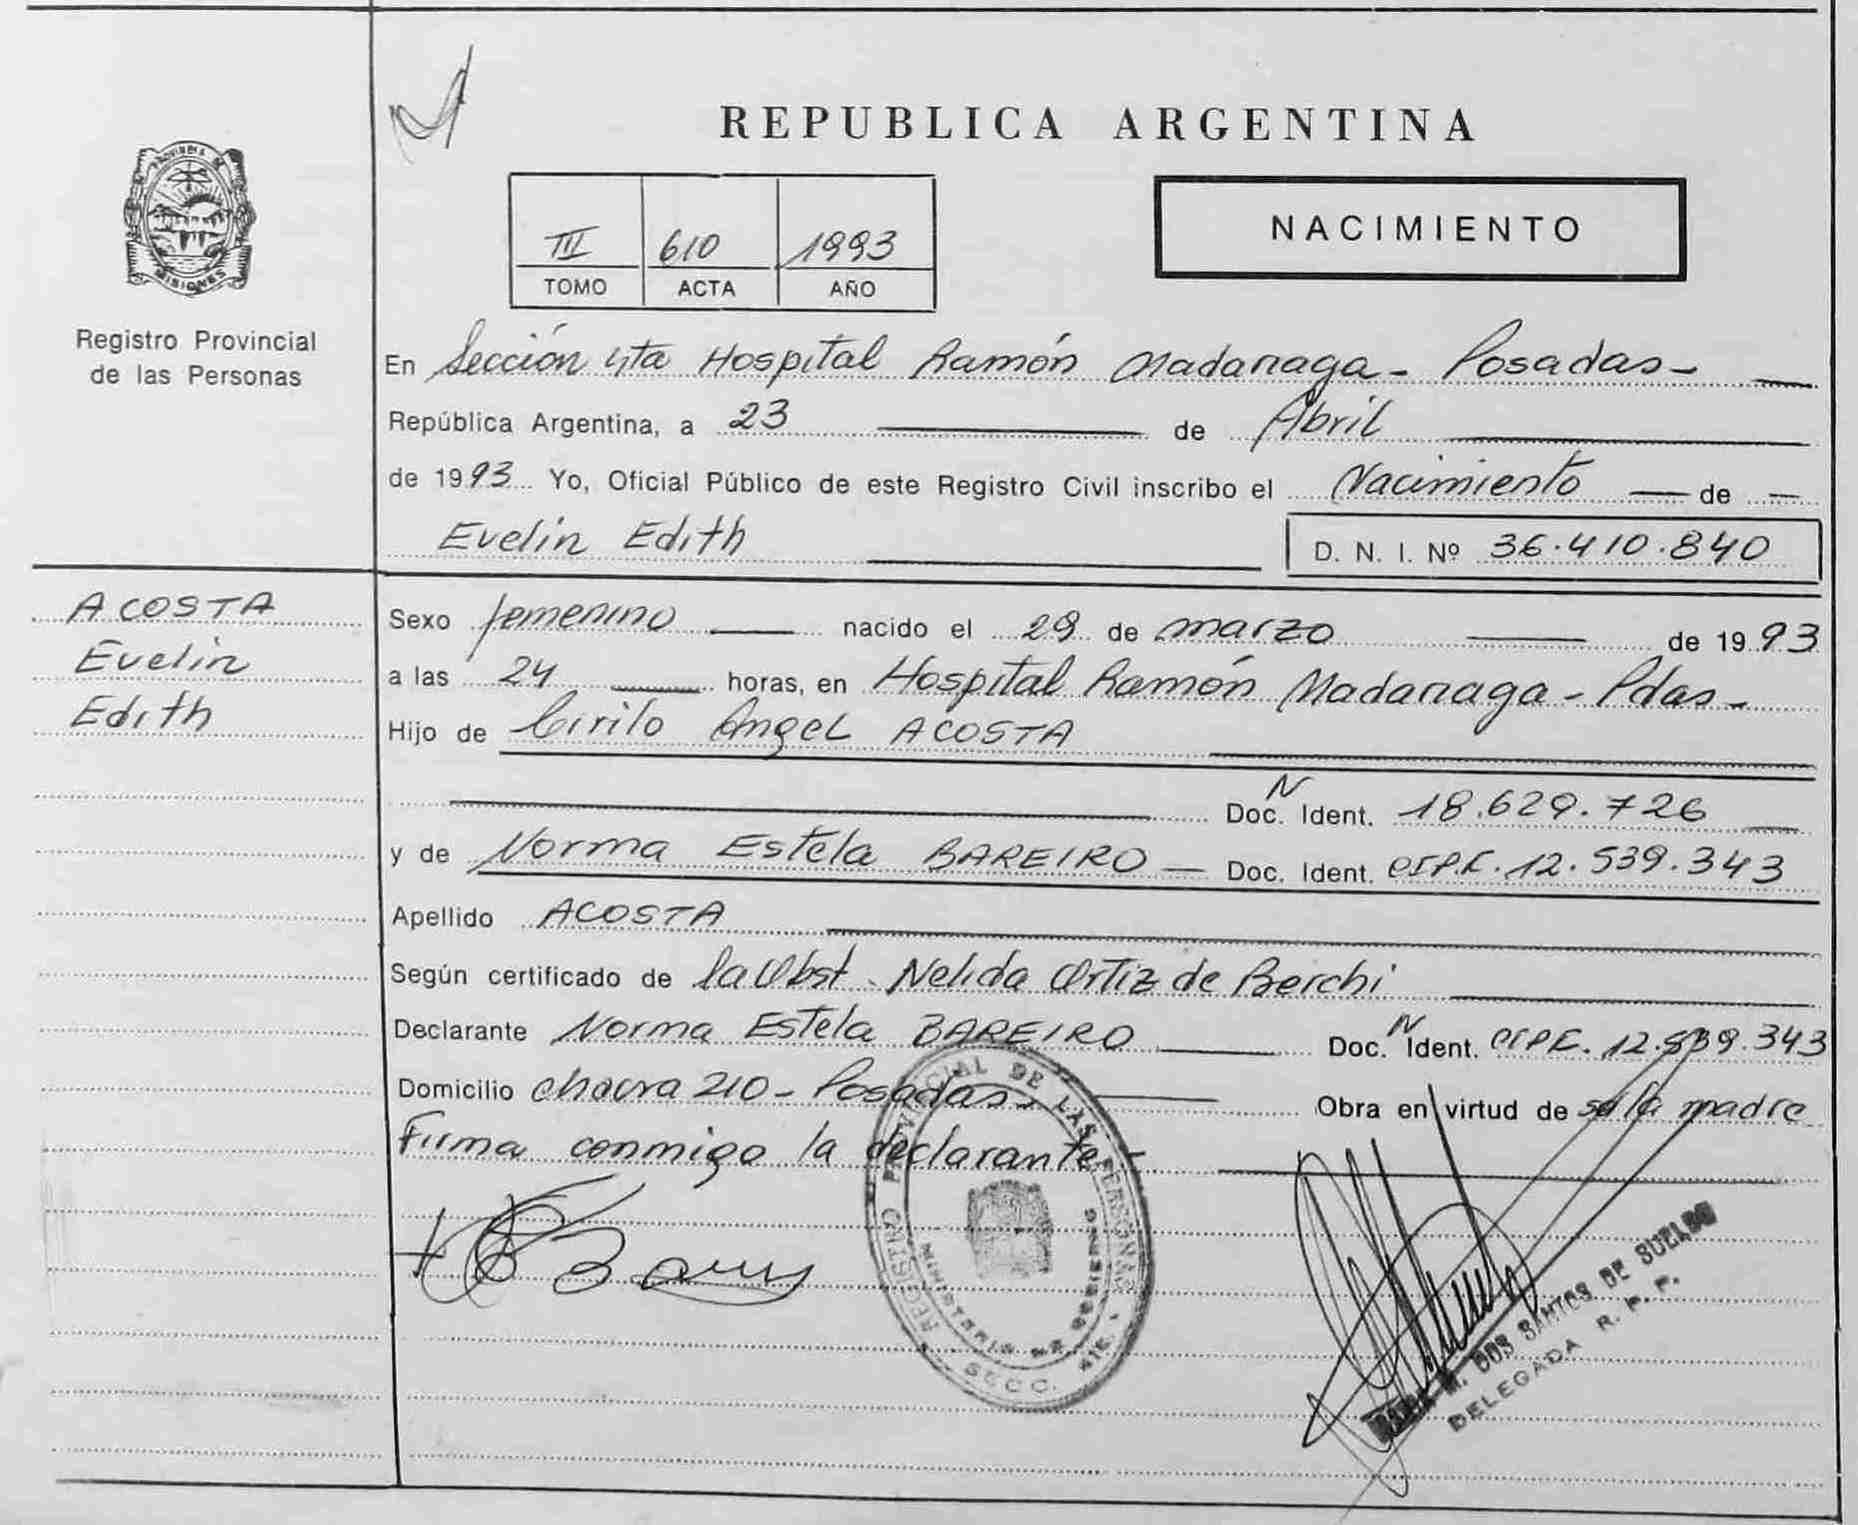 REPUBLICA ARGENTINA
PROVINCIA DE MISIONES
Registro Provincial
de las Personas
III 610 1993
TOMO ACTA AÑO
NACIMIENTO
En Sección 4ta Hospital Ramón Madariaga - Posadas -
República Argentina, a 23 de Abril
de 1993 Yo, Oficial Público de este Registro Civil inscribo el Nacimiento de
Evelin Edith D. N. I. Nº 36.410.840
ACOSTA
Evelin
Edith
Sexo femenino nacido el 29 de marzo de 1993
a las 24 horas, en Hospital Ramón Madariaga - Pdas -
Hijo de Cirilo Angel ACOSTA
N
Doc. Ident. 18.629.726
y de Norma Estela BAREIRO Doc. Ident. 12.539.343
Apellido ACOSTA
Según certificado de la Obst. Nelida Ortiz de Berchi
N
Declarante Norma Estela BAREIRO Doc. Ident. 12.539.343
Domicilio chacra 210 - Posadas - Obra en virtud de la madre
Firma conmigo la declarante -
REGISTRO PROVINCIAL DE LAS PERSONAS
MINISTERIO DE GOBIERNO
SECC. 4ta.
M. DOS SANTOS DE SUELDO
DELEGADA R. P. P.